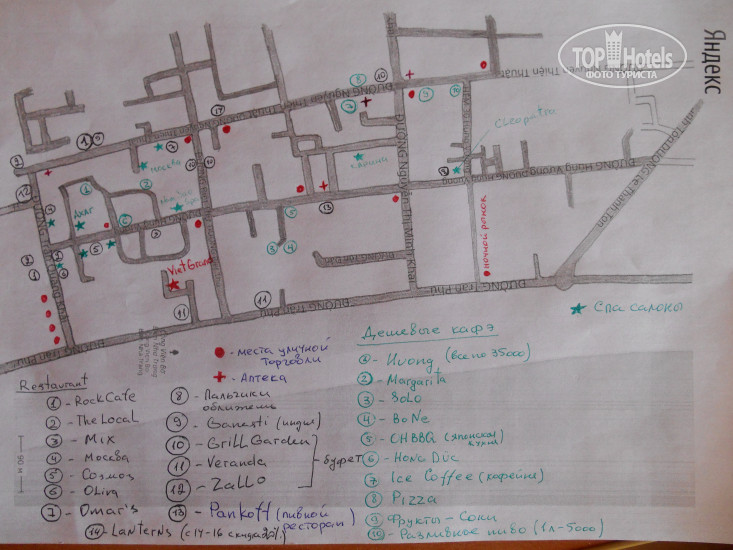 Яндекс
TOP Hotels
ФОТО ТУРИСТА
DUONG Nguyen Thiện Thuật
Nguyen Thiện Thuật
DUONG Hung Vuong
DUONG Hung Vuong
DUONG Nguyen Thi Minh Khai
DUONG Le Thanh Ton
DUONG Tran Phu
DUONG Tran Phu
Cleopatra
Москва
Карина
VietGrand
ночной рынок
Спа салоны
- места уличной
торговли
- Аптека
50 м
Restaurant
1 - RockCafe
2 - The Local
3 - Mix
4 - Москва
5 - Космоз
6 - Oliva
7 - Omar's
14 - Lanterns (с 14-16 скидка 20%)
8 - Пальчики
оближешь
9 - Ganesti (индия)
10 - Grill Garden
11 - Veranda
12 - Zallo
- буфет
13 - Pankoff (пивной
ресторан)
Дешевые кафэ
1 - Huong (все по 35000)
2 - Margarita
3 - SoLo
4 - BoNe
5 - CHBBQ (японская кухня)
6 - Hong Duc
7 - Ice Coffee (кофейня)
8 - Pizza
9 - Фрукты - Соки
10 - Разливное пиво (1л-5000)